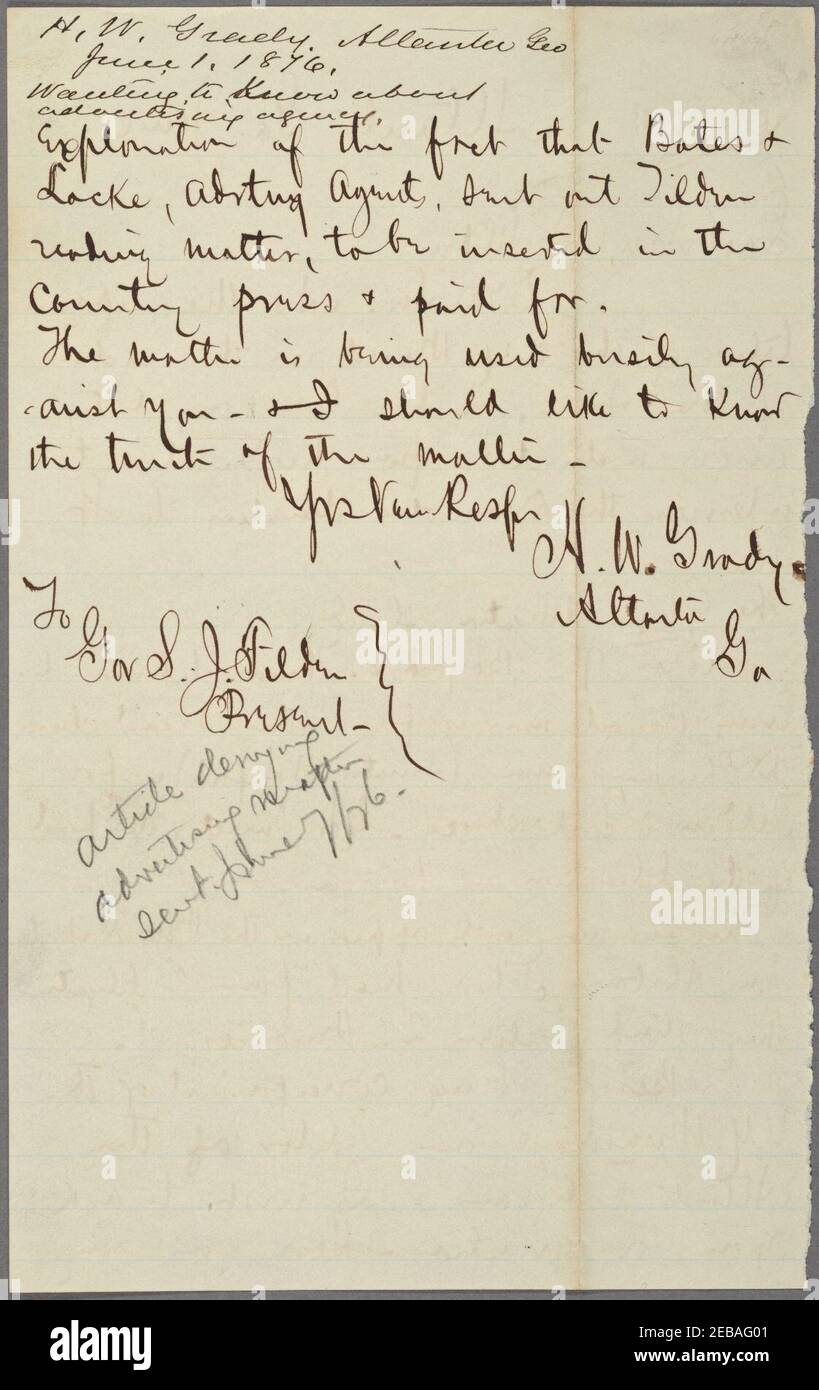 H. W. Grady. Atlanta Geo
June 1. 1876.
Wanting to Know about
advertising agency.
Explanation of the fact that Bates &
Locke, Advtng Agents, sent out Tilden
reading matter, to be inserted in the
Country press & paid for.
The matter is being used busily ag-
-ainst you - & I should like to Know
the truth of the matter -
Yrs Very Respy
H. W. Grady.
Atlanta
Ga
To
Gov S. J. Tilden
Present -
article denying
advertising matter
sent June 7/76.
alamy
Image ID: 2EBAG01
www.alamy.com